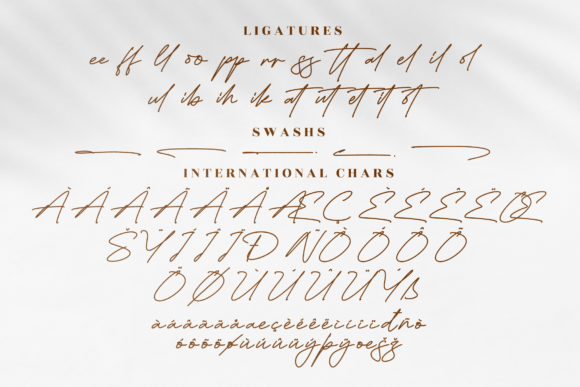 LIGATURES
ee ff ll oo pp rr ss tt al el il ol
ul ib ih ik at ut et it ot
SWASHS
INTERNATIONAL CHARS
À Á Â Ã Ä Å Æ Ç È É Ê Ë Œ
Š Ÿ Ì Í Î Ð Ñ Ò Ó Ô Õ
Ö Ø Ù Ú Û Ü Ý ß
à á â ã ä å æ ç è é ê ë ì í î ï ð ñ ò
ó ô õ ö ø ù ú û ü ý þ ÿ œ š ž